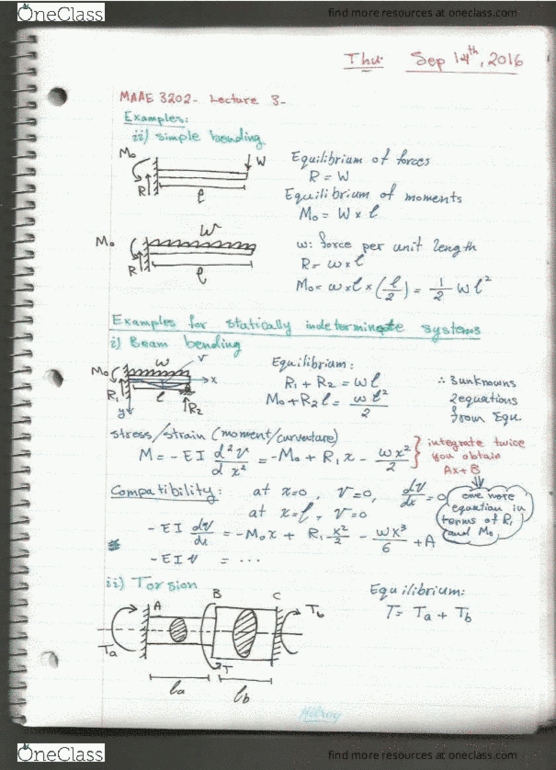 OneClass
find more resources at oneclass.com
Thu. Sep 14th, 2016
MAAE 3202- Lecture 3-
Examples:
ii) simple bending
Mo
W
R
l
Equilibrium of forces
R = W
Equilibrium of moments
Mo = W x l
Mo
w
R
l
w: force per unit length
R = w x l
Mo = w x l x (l/2) = 1/2 w l²
Examples for statically indeterminate systems
i) Beam bending
Mo
w
v
x
R1
l
y
R2
Equilibrium:
R1 + R2 = wl
Mo + R2 l = wl²/2
∴ 3 unknowns
2 equations
from Equ
stress/strain (moment/curvature)
M = -EI d²v/dx² = -Mo + R1 x - wx²/2
integrate twice
you obtain
Ax + B
Compatibility: at x=0, v=0, dv/dx = 0
at x=l, v=0
one more
equation in
terms of R1
and Mo
-EI dv/dx = -Mo x + R1 x²/2 - wx³/6 + A
-EI v = ...
ii) Torsion
A
B
C
Ta
Tb
T
la
lb
Equilibrium:
T = Ta + Tb
Hilroy
OneClass
find more resources at oneclass.com